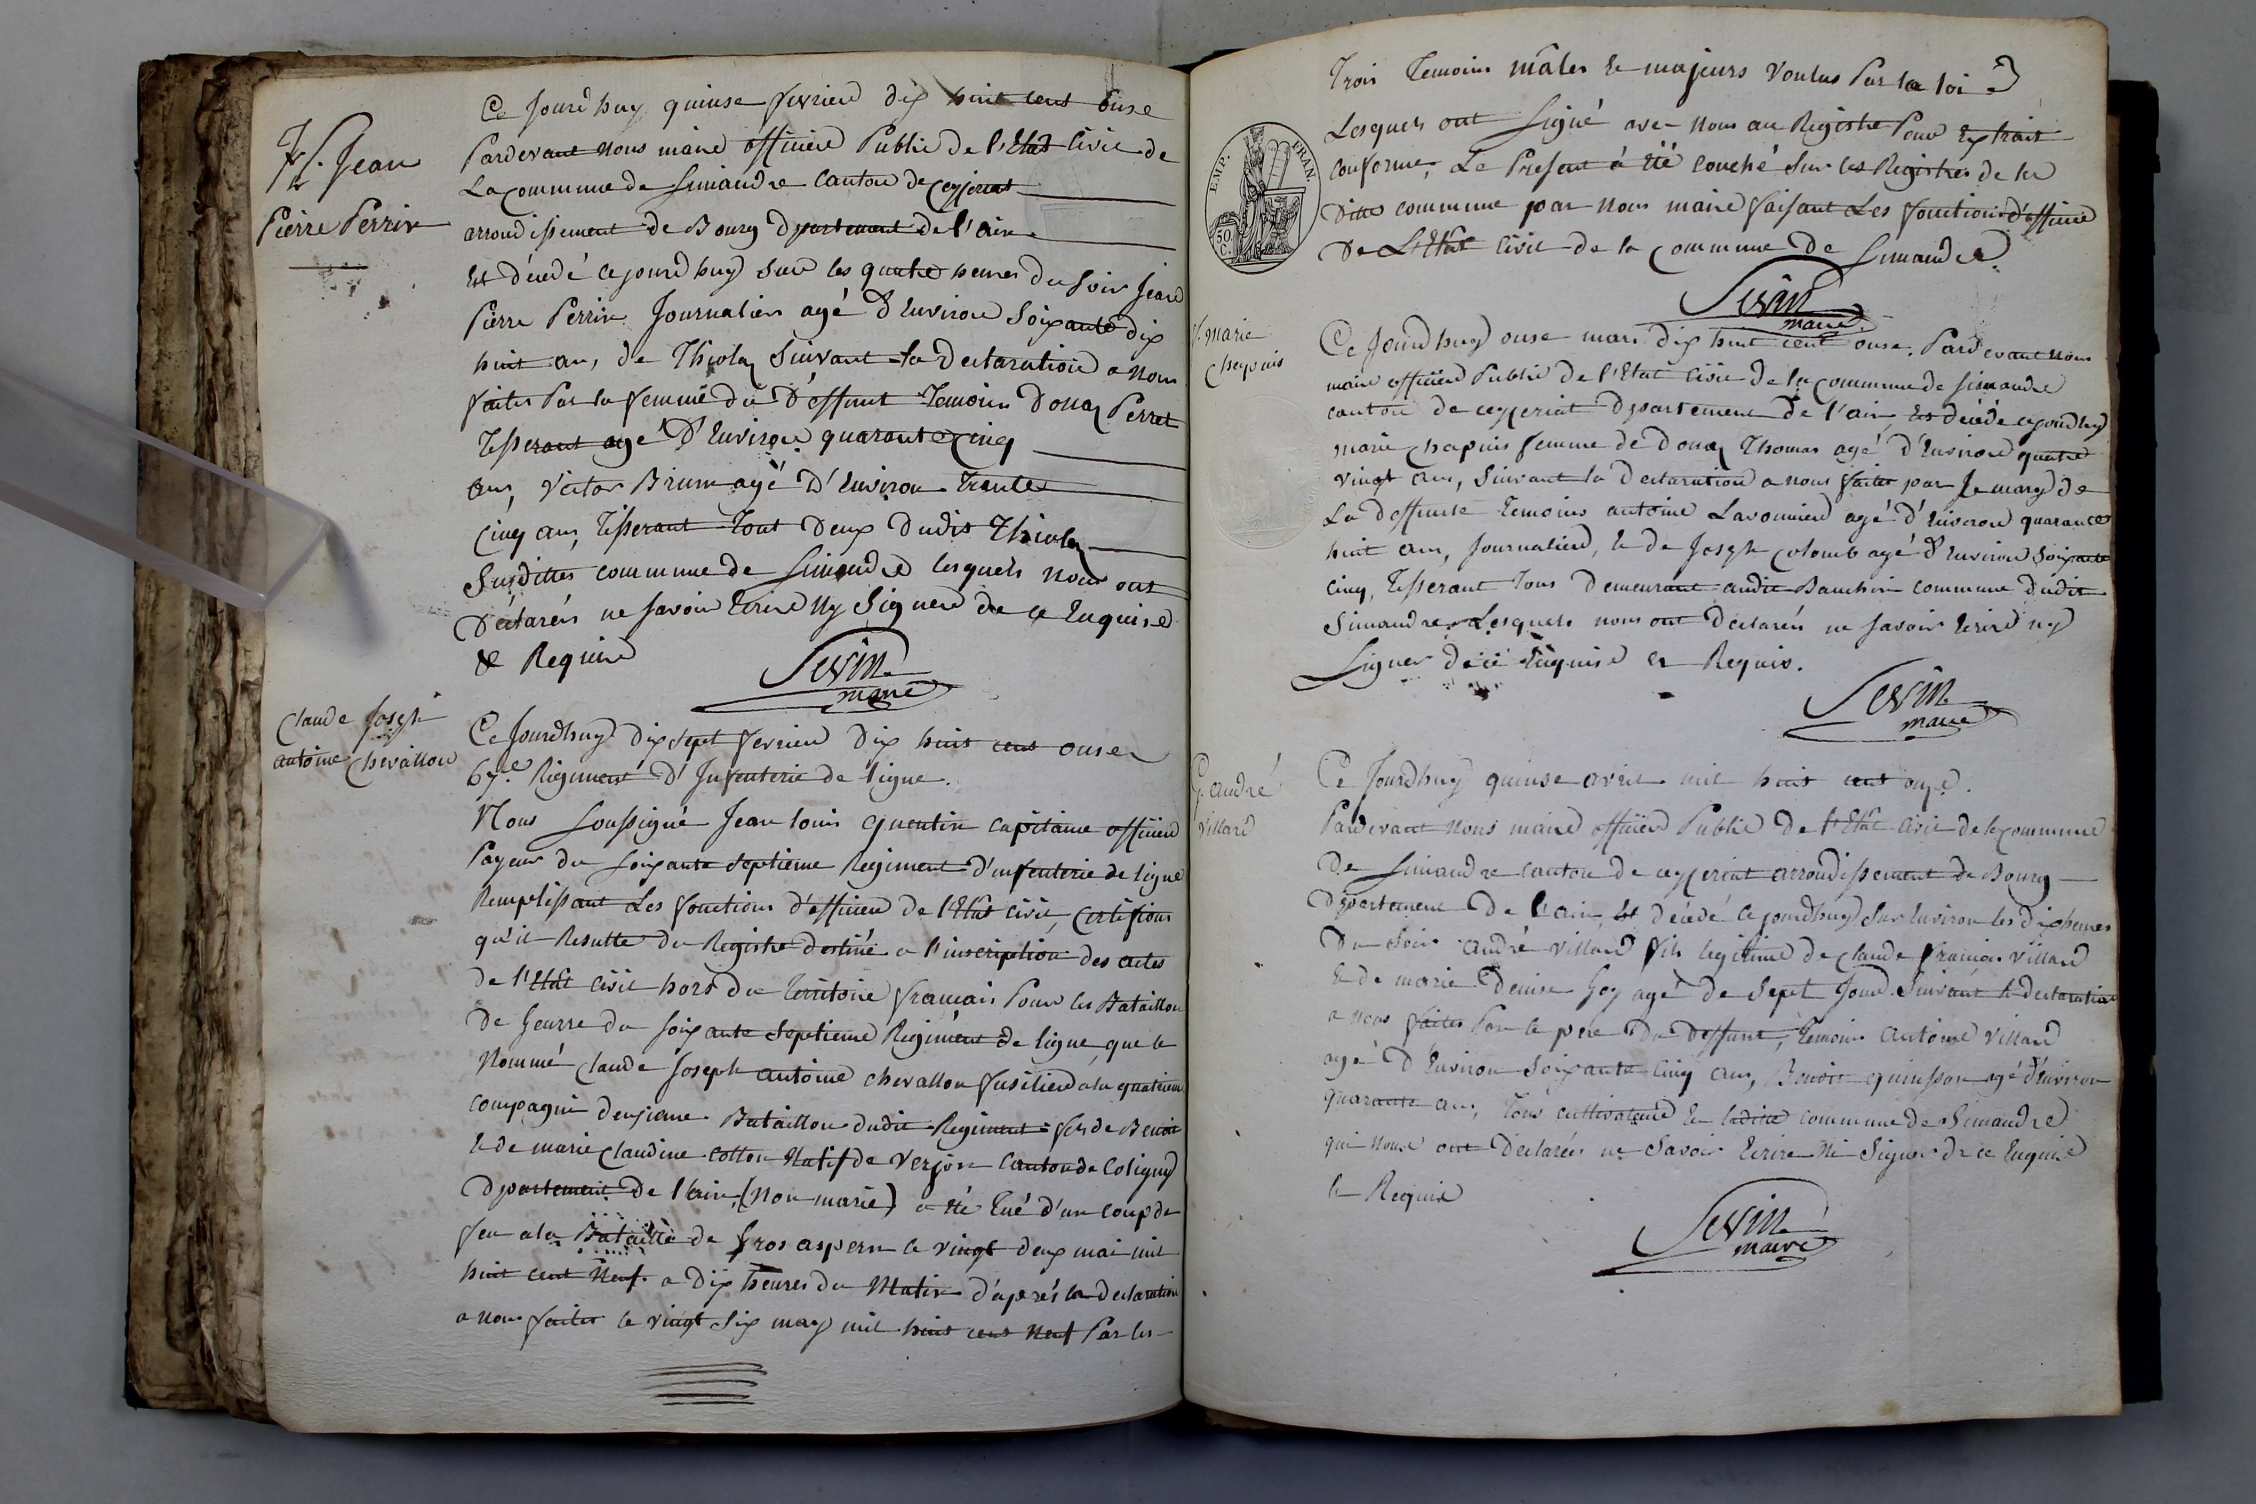 Jean
Pierre Perrin
Ce Jourdhuy quinse fevrier dix huit cent onse
Pardevant nous maire officier Public de l'Etat Civil de
La commune de Simandre canton de Ceyseriat
arrondissement de Bourg Dpartement de l'ain
Est décédé cejourdhuy sur les quatre heures du soir Jean
Pierre Perrin Journalier agé d'Environ soixante dix
huit ans, de Thiolay suivant la declaration a nous
faites Par la femme du deffunt Temoins Donay Perret
Tisserant agé d'Environ quarante cinq
ans, victor Brun agé d'Environ trante
cinq ans, Tisserant tous deux dudit Thiolay
Susdittes commune de Simandre lesquels nous ont
déclarés ne savoir Ecrire Ny Signer de ce Enquis
& Requis
Sevin
maire
Claude Joseph
antoine Chevallon
Ce Jourdhuy dix sept fevrier dix huit cent onse
67e. Régiment d'Infenterie de ligne.
Nous Soussigné Jean louis quentin capitaine officier
Payeur du soixante septieme Regiment d'infenterie de ligne
Remplissant Les fonctions d'officier de l'Etat civil, certifions
qu'il Resulte du Registre destiné a l'inscription des actes
de l'Etat civil hors du territoire francais Pour les Bataillon
de Geurre du soixante septieme Regiment de ligne, que le
Nommé Claude Joseph antoine chevallon fusilier a la quatrieme
compagnie deuxieme Bataillon dudit Regiment fils de Benoit
& de marie Claudine cotton Natif de verjon canton de Coligny
Dpartement de l'ain, (non marié) a été tué d'un coup de
feu a la Bataille de gros aspern le vingt deux mai mil
huit cent Neuf a dix heures du Matin d'après la declaration
a nous faites le vingt six may mil huit cent neuf Par les
Trois Temoins mâles & majeurs voulus Par la loi
Lesquels ont Signé avec nous au Registre Pour Extrait
conforme, Le Present à été couché sur les Registres de la
ditte commune par nous maire faisant Les fonctions d'officier
De L'Etat civil de la commune de Simandre
EMP. FRAN.
50
C.
Sevin
maire
marie
Chapuis
Ce Jourdhuy onse mars dix huit cent onse. Pardevant nous
maire officier Public de l'Etat civil de la commune de simandre
canton de ceyzeriat Dpartement de l'ain, Est décédé cejourdhuy
marie chapuis femme de Donay Thomas agé d'Environ quatre
vingt ans, suivant la declaration a nous faites par le mary de
La deffunte temoins antoine Lavonnier agé d'Environ quarante
huit ans, Journalier, & de Joseph colomb agé d'Environ soixante
cinq, Tisserant Tous demeurant audit Bauchin commune dudit
Simandre Lesquels nous ont déclarés ne savoir Ecrire ny
Signer de ce Enquis et Requis.
Sevin
maire
andré
villard
Ce Jourdhuy quinse avril mil huit cent onze.
Pardevant nous maire officier Public de l'Etat civil de la commune
De Simandre canton de ceyzeriat arrondissement de Bourg
Dpartement De l'ain, Est décédé cejourdhuy sur Environ les dix heures
Du soir andré villard fils legitime de claude francois villard
& de marie Denise Goy agé de sept Jours suivant la declaration
a nous faites Par le pere du deffunt, temoins antoine villard
agé d'Environ soixante cinq ans, Benoit quinsson agé d'Environ
quarante ans, tous cultivateurs en laditte commune de Simandre
qui nous ont declarés ne savoir Ecrire Ni Signer de ce Enquis
& Requis
Sevin
maire